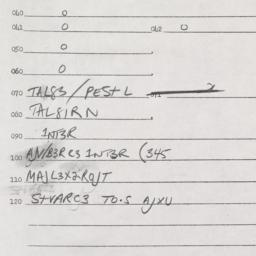 040 0
041 0 042 0
050 0
060 0
070 TAL83/PEST L 071
080 TAL81RN
090 INT3R
100 AN/83RC3 INT3R (345
110 MAJL3X2RQJT
120 STVARC3 TO.S AJXU